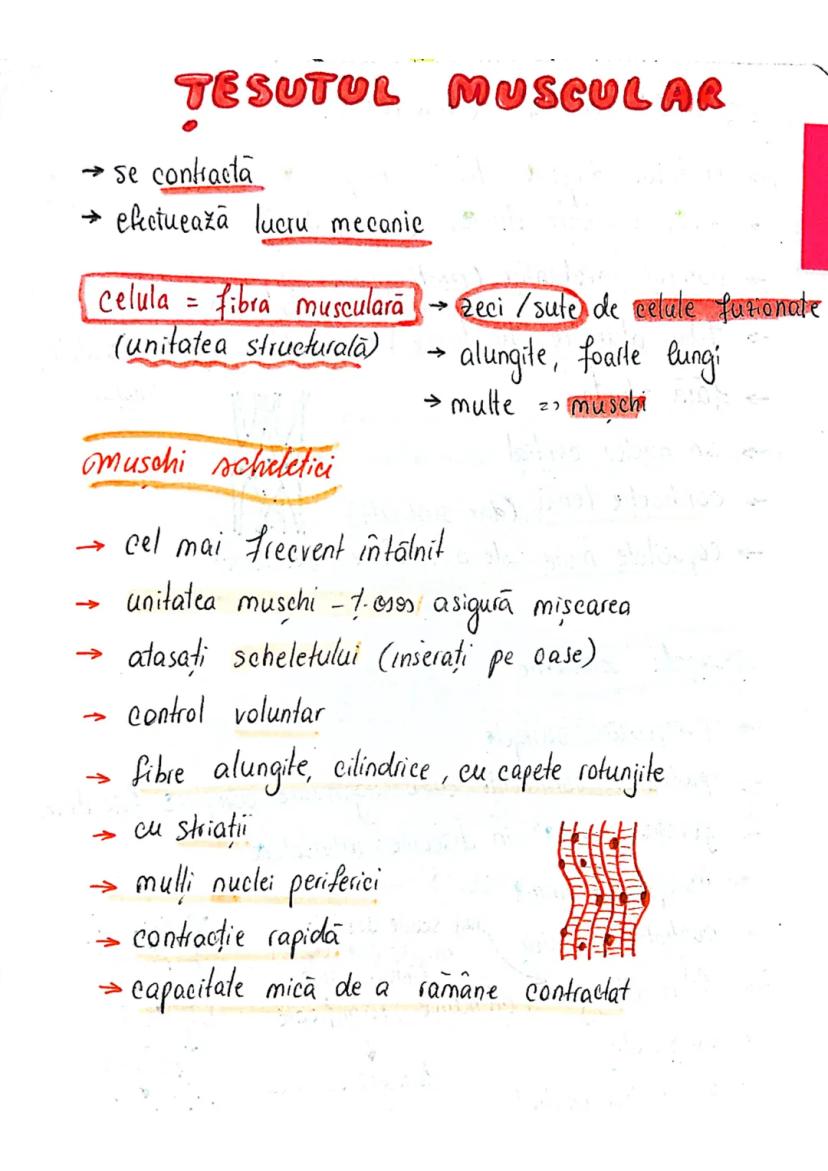 ȚESUTUL MUSCULAR
→ se contractă
→ efectuează lucru mecanic
celula = fibra musculară → zeci / sute de celule fuzionate
(unitatea structurală) → alungite, foarte lungi
→ multe => mușchi
mușchi scheletici
→ cel mai frecvent întâlnit
→ unitatea mușchi - ț. osos asigură mișcarea
→ atașați scheletului (inserați pe oase)
→ control voluntar
→ fibre alungite, cilindrice, cu capete rotunjite
→ cu striații
→ mulți nuclei periferici
→ contracție rapidă
→ capacitate mică de a rămâne contractat